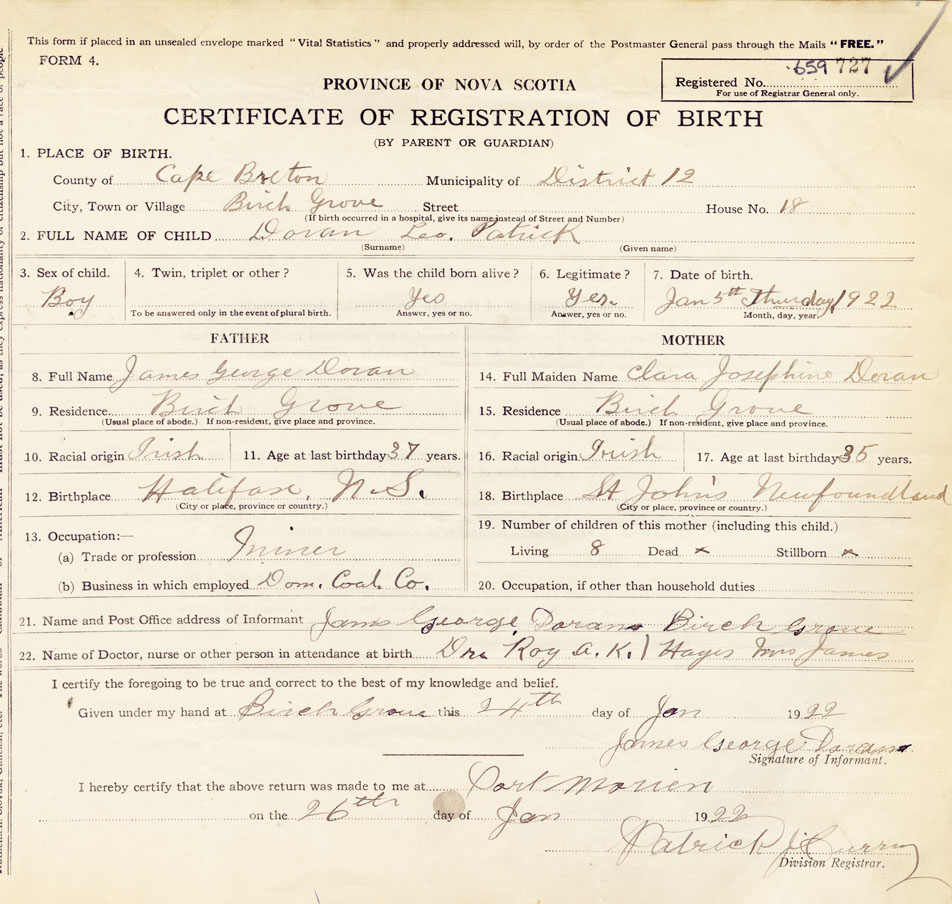 This form if placed in an unsealed envelope marked "Vital Statistics" and properly addressed will, by order of the Postmaster General pass through the Mails "FREE."
FORM 4.
659 727
Registered No.
For use of Registrar General only.
PROVINCE OF NOVA SCOTIA
CERTIFICATE OF REGISTRATION OF BIRTH
(BY PARENT OR GUARDIAN)
1. PLACE OF BIRTH.
County of Cape Breton Municipality of District 12
City, Town or Village Birch Grove Street House No. 18
(If birth occurred in a hospital, give its name instead of Street and Number)
2. FULL NAME OF CHILD Doran Leo. Patrick
(Surname) (Given name)
3. Sex of child. 4. Twin, triplet or other? 5. Was the child born alive? 6. Legitimate? 7. Date of birth.
Boy Yes Yes. Jan 5th Thursday 1922
To be answered only in the event of plural birth. Answer, yes or no. Answer, yes or no. Month, day, year.
FATHER MOTHER
8. Full Name James George Doran 14. Full Maiden Name Clara Josephine Doran
9. Residence Birch Grove 15. Residence Birch Grove
(Usual place of abode.) If non-resident, give place and province. (Usual place of abode.) If non-resident, give place and province.
10. Racial origin Irish 11. Age at last birthday 37 years. 16. Racial origin Irish 17. Age at last birthday 35 years.
12. Birthplace Halifax, N.S. 18. Birthplace St John's Newfoundland
(City or place, province or country.) (City or place, province or country.)
19. Number of children of this mother (including this child.)
13. Occupation:—
(a) Trade or profession Miner Living 8 Dead x Stillborn x
(b) Business in which employed Dom. Coal. Co. 20. Occupation, if other than household duties
21. Name and Post Office address of Informant James George Doran Birch Grove
22. Name of Doctor, nurse or other person in attendance at birth Dr. Roy A. K. Hayes Mrs James
I certify the foregoing to be true and correct to the best of my knowledge and belief.
Given under my hand at Birch Grove this 24th day of Jan 1922
James George Doran
Signature of Informant.
I hereby certify that the above return was made to me at Port Morien
on the 26th day of Jan 1922
Patrick J Curry
Division Registrar.